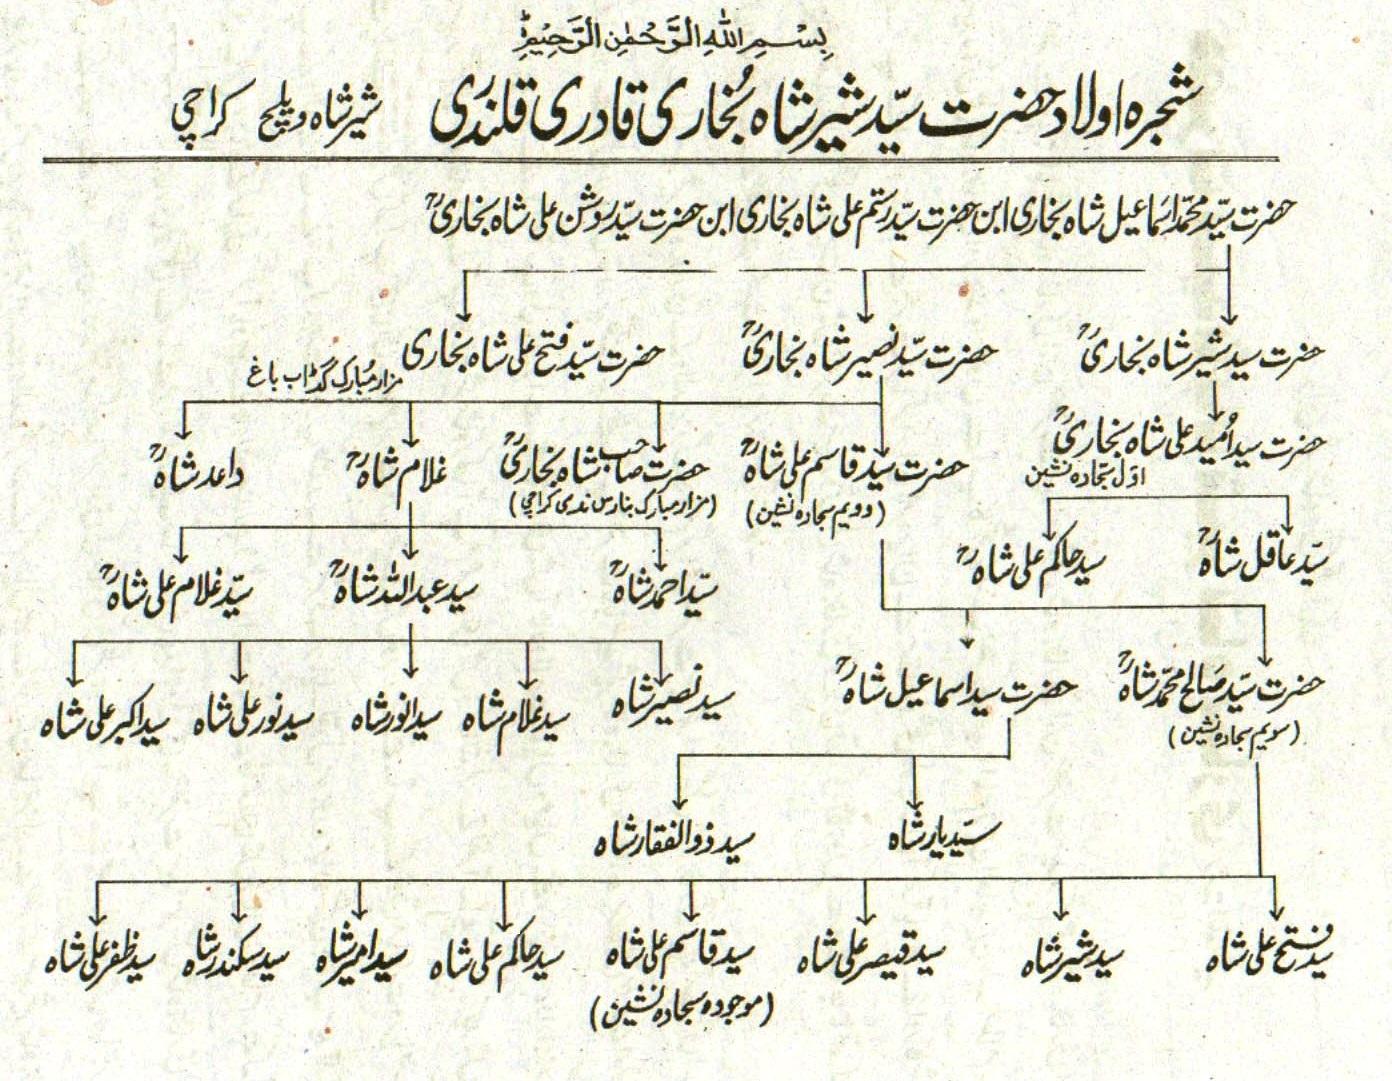 بِسْمِ اللهِ الرَّحْمٰنِ الرَّحِيْمِ
شجرہ اولاد حضرت سیّد شیر شاہ بُخاری قادری قلندری شیر شاہ ویلج کراچی
حضرت سیّد محمّد اسماعیل شاہ بخاری ابن حضرت سیّد رستم علی شاہ بخاری ابن حضرت سیّد روشن علی شاہ بخاریؒ
حضرت سید شیر شاہ بخاریؒ حضرت سیّد نصیر شاہ بخاریؒ حضرت سیّد فتح علی شاہ بخاری
مزار مُبارک گڈاب باغ
حضرت سید اُمید علی شاہ بخاریؒ حضرت سیّد قاسم علی شاہؒ حضرت صاحب شاہ بخاریؒ غلام شاہؒ داعد شاہؒ
اوّل سجّادہ نشین (دویم سجادہ نشین) (مزار مبارک بنارس ندی کراچی)
سیّد عاقل شاہؒ سید حاکم علی شاہؒ سیّد احمد شاہؒ سید عبداللہ شاہؒ سیّد غلام علی شاہؒ
حضرت سیّد صالح محمّد شاہؒ حضرت سید اسماعیل شاہؒ سید نصیر شاہ سید غلام شاہ سید انور شاہ سید نور علی شاہ سید اکبر علی شاہ
(سویم سجادہ نشین)
سیّد یار شاہ سید ذوالفقار شاہ
سید فتح علی شاہ سید شیر شاہ سید قیصر علی شاہ سید قاسم علی شاہ سید حاکم علی شاہ سید امیر شاہ سید سکندر شاہ سید ظفر علی شاہ
(موجودہ سجادہ نشین)